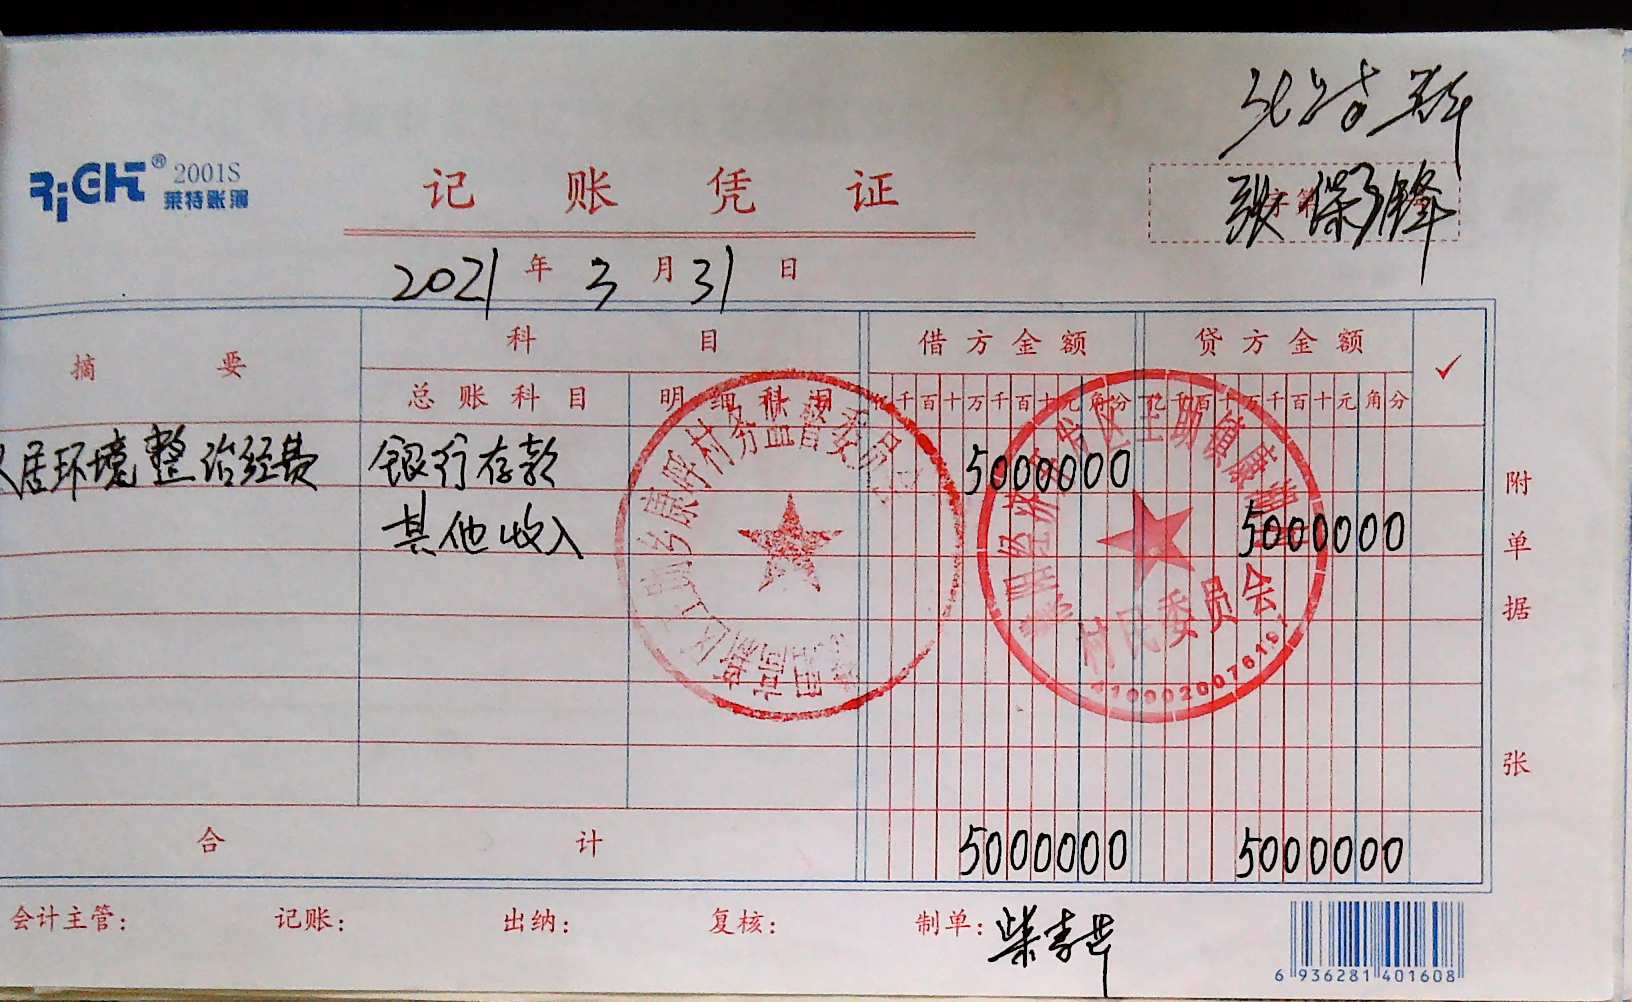 RiGHT® 2001S
莱特账簿
记账凭证
张保锋
2021年3月31日
摘要 科目 借方金额 贷方金额 ✓
总账科目 明细科目 亿千百十万千百十元角分 亿千百十万千百十元角分
人居环境整治经费 银行存款 5000000
其他收入 5000000
村务监督委员会
村民委员会
附单据 张
合计 5000000 5000000
会计主管: 记账: 出纳: 复核: 制单:
6 936281 401608